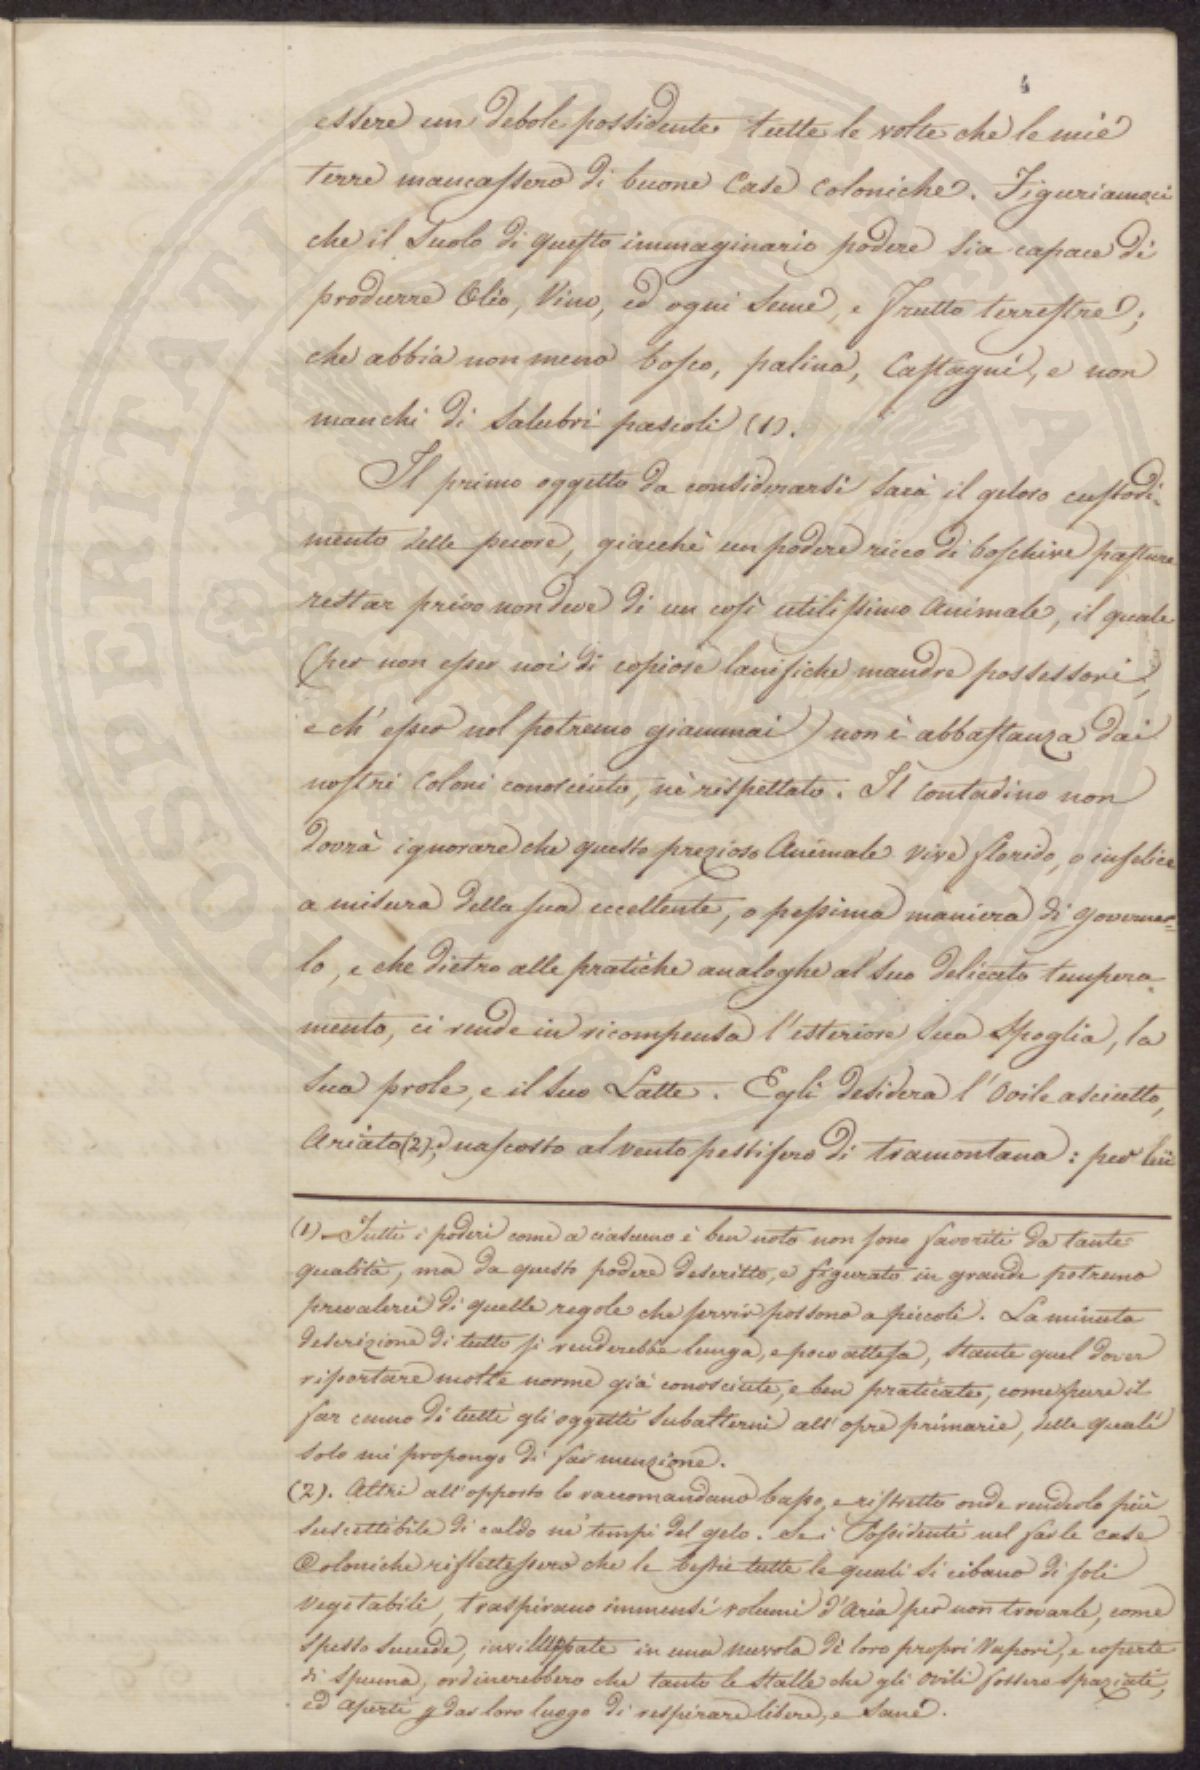 4
essere un debole possidente tutte le volte che le mie
terre mancassero di buone Case Coloniche. Figuriamoci
che il Suolo di questo immaginario podere sia capace di
produrre Olio, Vino, ed ogni seme, e frutto terrestre;
che abbia non meno bosco, palina, Castagni, e non
manchi di salubri pascoli (1).
Il primo oggetto da considerarsi sarà il geloso custodi-
mento delle pecore, giacchè un podere ricco di boschive pasture
restar privo non deve di un così utilissimo Animale, il quale
(per non esser noi di copiose lanifiche mandre possessori,
e ch' esser nol potremo giammai) non è abbastanza dai
nostri Coloni conosciuto, nè rispettato. Il Contadino non
dovrà ignorare che questo prezioso Animale vive florido, o infelice
a misura della sua eccellente, o pessima maniera di governar-
lo, e che dietro alle pratiche analoghe al suo delicato tempera-
mento, ci rende in ricompensa l'esteriore sua Spoglia, la
sua prole, e il suo Latte. Egli desidera l'Ovile asciutto,
Ariato (2); nascosto al vento pestifero di tramontana: per lui
(1) Tutti i poderi come a ciascuno è ben noto non sono favoriti da tante
qualità, ma da questo podere descritto, e figurato in grande potremo
prevalerci di quelle regole che servir possono a piccoli. La minuta
descrizione di tutto si renderebbe lunga, e poco attesa, stante quel dover
riportare molte norme già conosciute, e ben praticate, come pure il
far cenno di tutti gli oggetti subalterni all' opre primarie, delle quali
solo mi propongo di far menzione.
(2). Altri all'opposto lo raccomandano basso, e ristretto onde renderlo più
suscettibile di caldo ne' tempi del gelo. Se i Possidenti nel far le case
Coloniche riflettessero che le bestie tutte le quali si cibano di soli
vegetabili, traspirano immensi volumi d'Aria per non trovarle, come
spesso succede, inviluppate in una nuvola di loro propri Vapori, e coperte
di spuma, ordinerebbero che tanto le Stalle che gli Ovili fossero spaziati,
ed aperti p dar loro luogo di respirare libere, e sane.